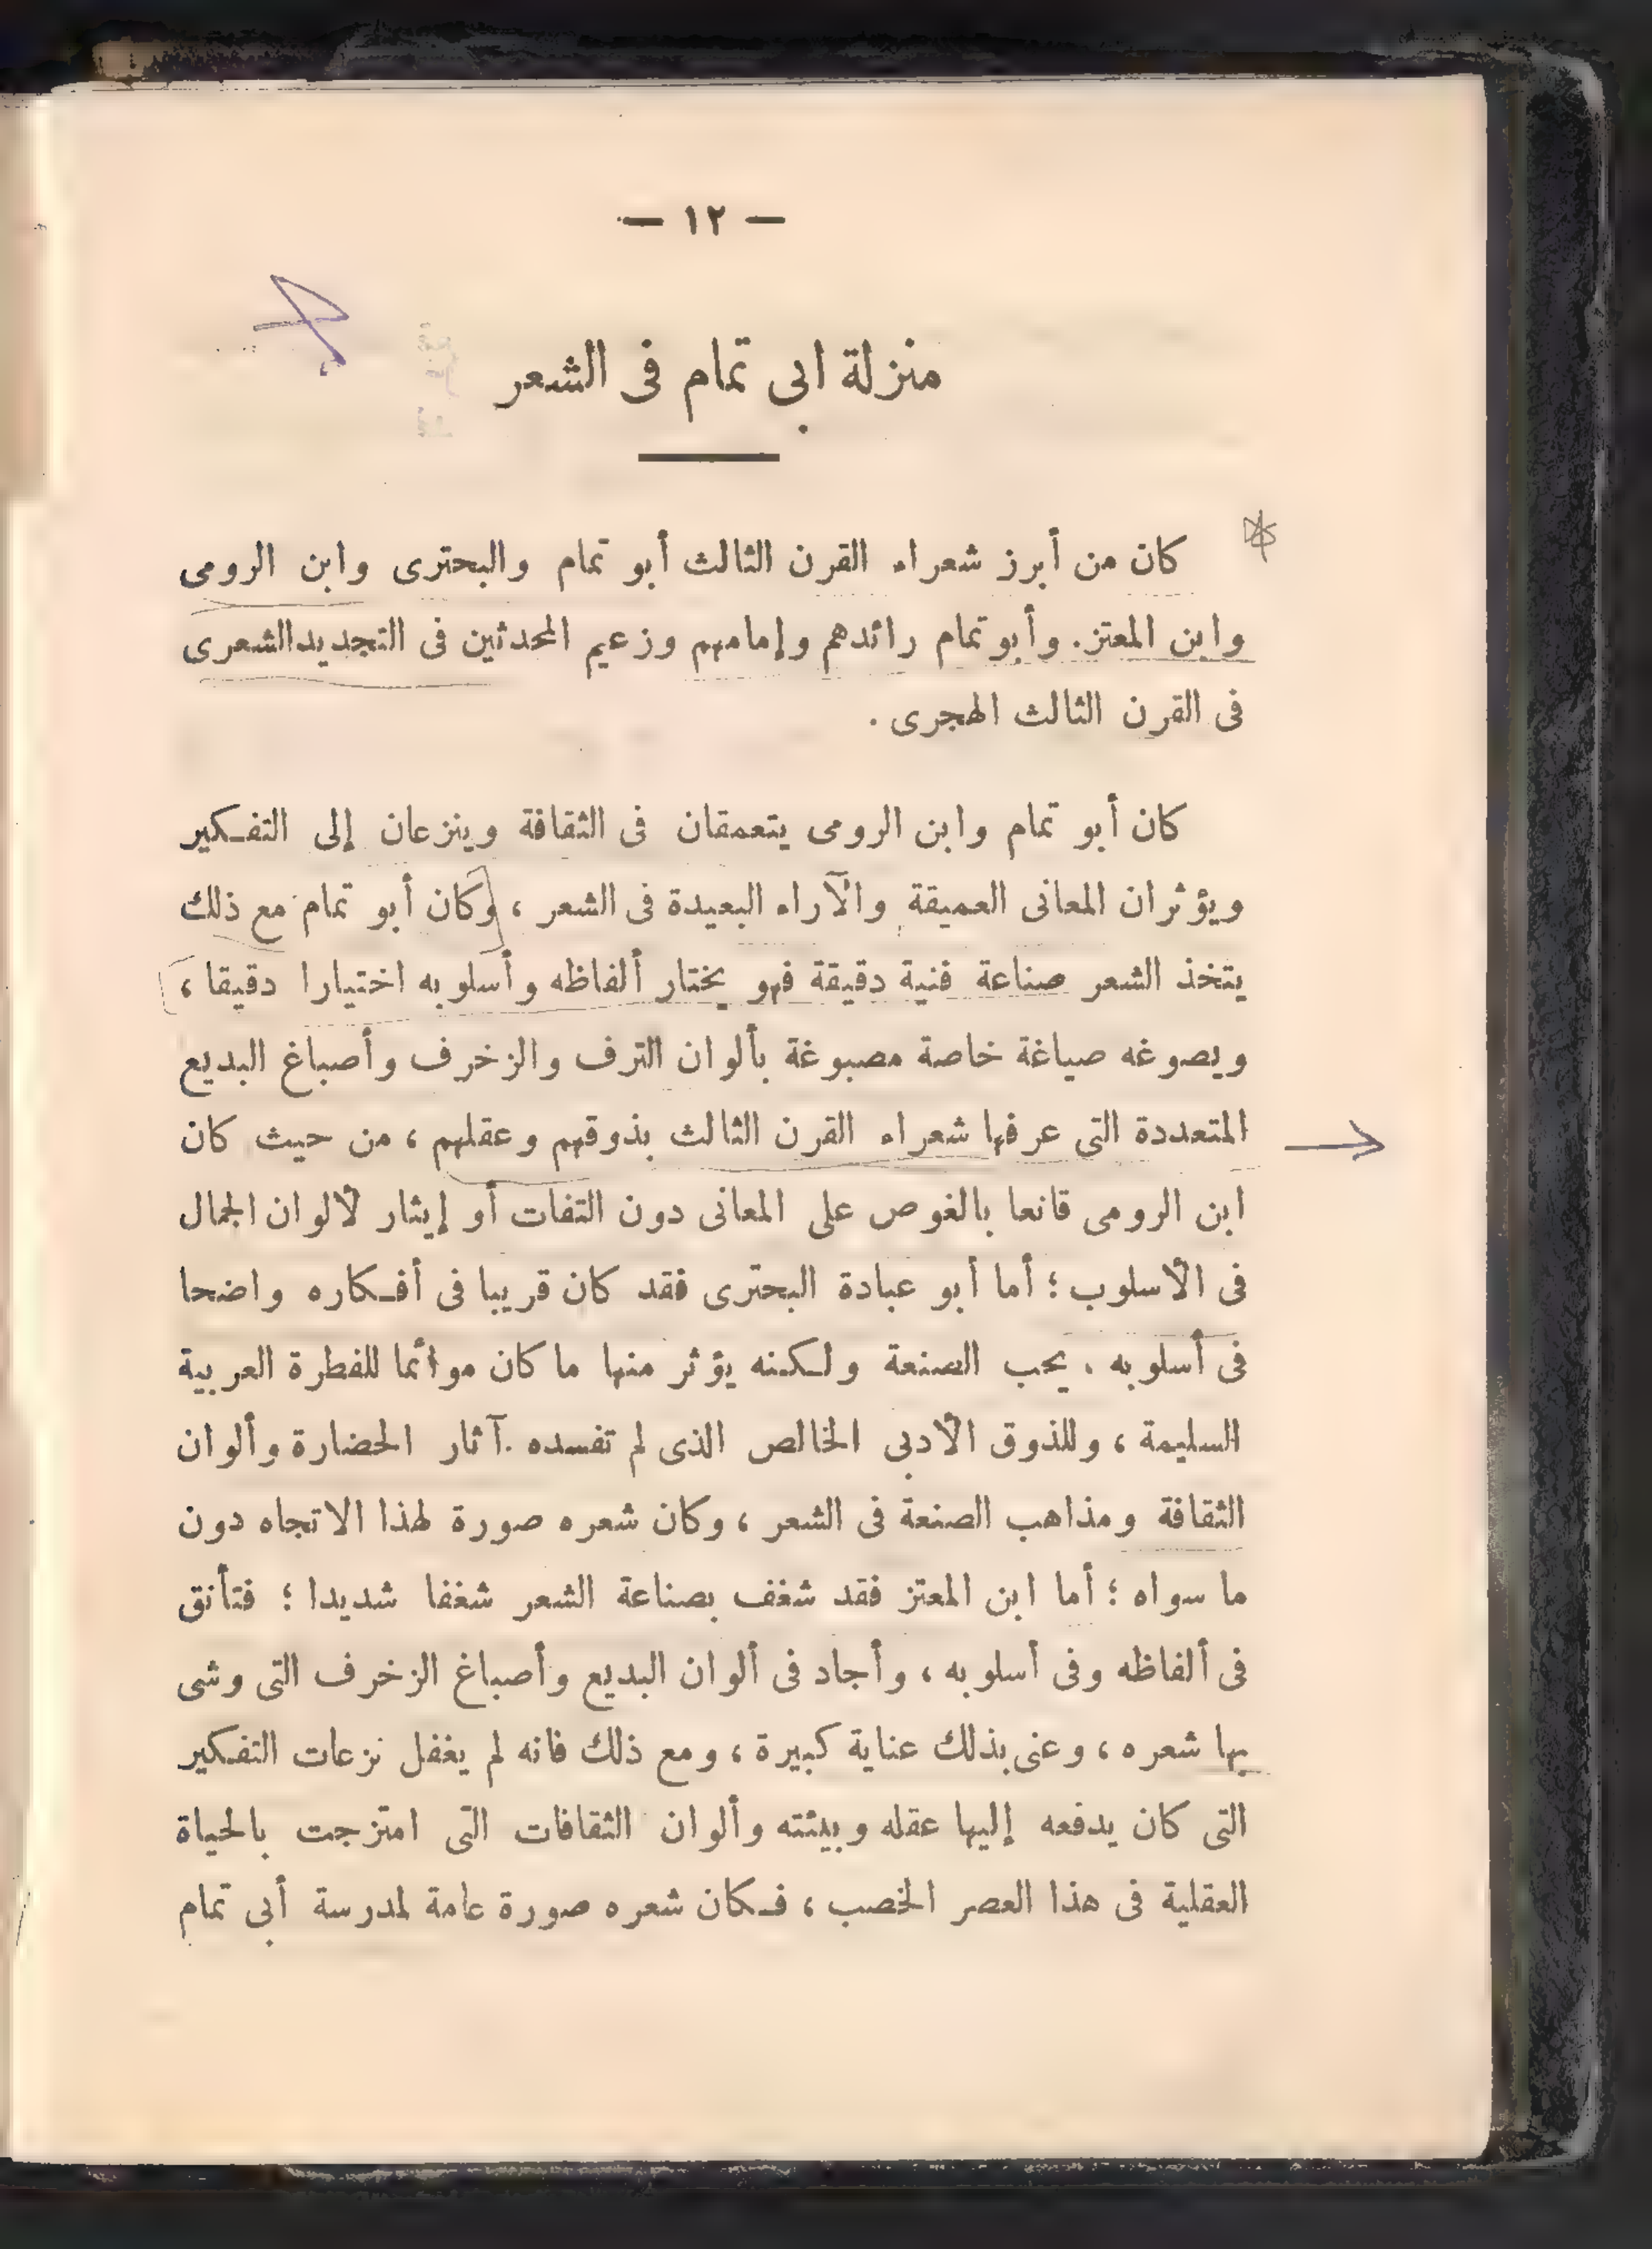 — ١٢ —
منزلة ابى تمام فى الشعر
كان من أبرز شعراء القرن الثالث أبو تمام والبحترى وابن الرومى
وابن المعتز. وأبو تمام رائدهم وإمامهم وزعيم المحدثين فى التجديد الشعرى
فى القرن الثالث الهجرى .
كان أبو تمام وابن الرومى يتعمقان فى الثقافة وينزعان إلى التفكير
ويؤثران المعانى العميقة والآراء البعيدة فى الشعر ، وكان أبو تمام مع ذلك
يتخذ الشعر صناعة فنية دقيقة فهو يختار ألفاظه وأسلوبه اختيارا دقيقا ،
ويصوغه صياغة خاصة مصبوغة بألوان الترف والزخرف وأصباغ البديع
المتعددة التى عرفها شعراء القرن الثالث بذوقهم وعقلهم ، من حيث كان
ابن الرومى قانعا بالغوص على المعانى دون التفات أو إيثار لألوان الجمال
فى الأسلوب ؛ أما أبو عبادة البحترى فقد كان قريبا فى أفكاره واضحا
فى أسلوبه . يحب الصنعة ولكنه يؤثر منها ما كان موائما للفطرة العربية
السليمة ، وللذوق الأدبى الخالص الذى لم تفسده آثار الحضارة وألوان
الثقافة ومذاهب الصنعة فى الشعر ، وكان شعره صورة لهذا الاتجاه دون
ما سواه ؛ أما ابن المعتز فقد شغف بصناعة الشعر شغفا شديدا ؛ فتأنق
فى ألفاظه وفى أسلوبه ، وأجاد فى ألوان البديع وأصباغ الزخرف التى وشى
بها شعره ، وعنى بذلك عناية كبيرة ، ومع ذلك فانه لم يغفل نزعات التفكير
التى كان يدفعه إليها عقله وبيئته وألوان الثقافات التى امتزجت بالحياة
العقلية فى هذا العصر الخصب ، فكان شعره صورة عامة لمدرسة أبى تمام